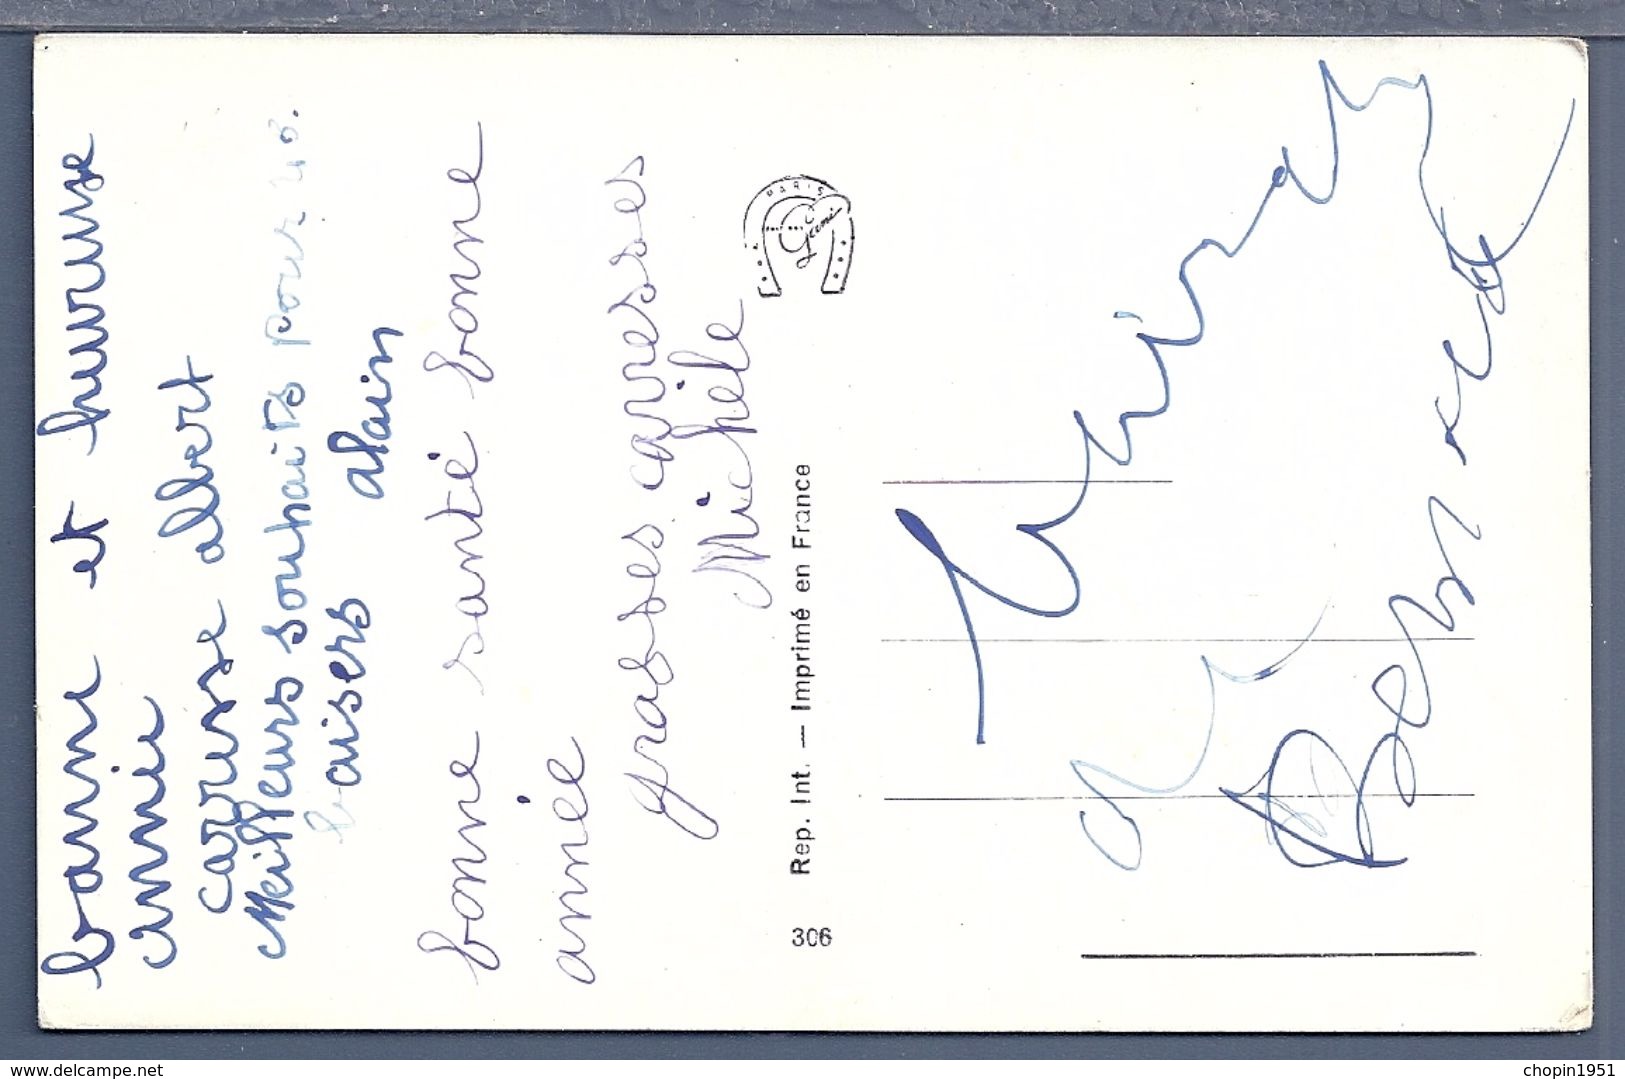 bonne et heureuse
année
albert
caresse
Meilleurs souhaits pour 46.
baisers alain
bonne santé bonne
année
grosses caresses
Michèle
PARIS
306 Rep. Int. — Imprimé en France
www.delcampe.net
chopin1951